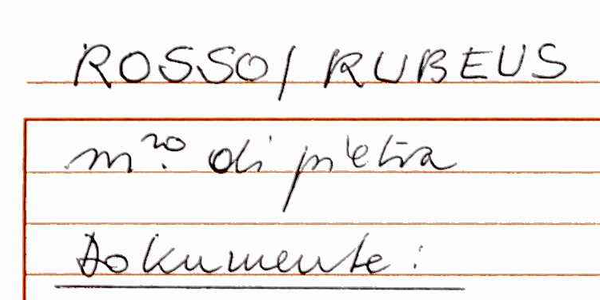 ROSSO/ RUBEUS
m.ro di pietra
Dokumente: